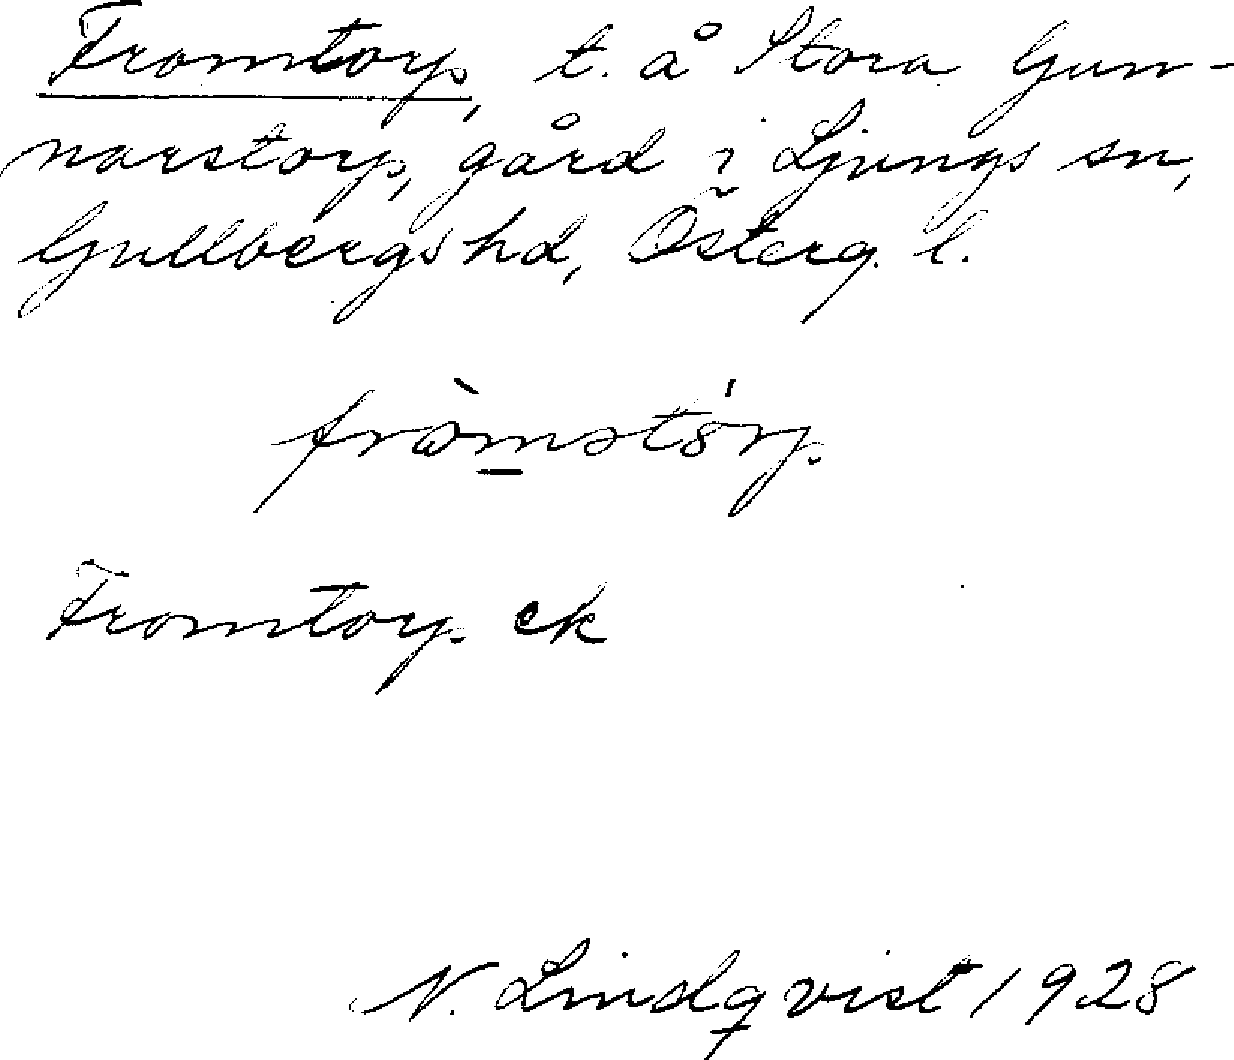 Fromtorp, t. å Stora Gun-
narstorp, gård i Ljungs sn,
Gullbergs hd, Österg. l.
Fromtorp. ek
N. Lindqvist 1928